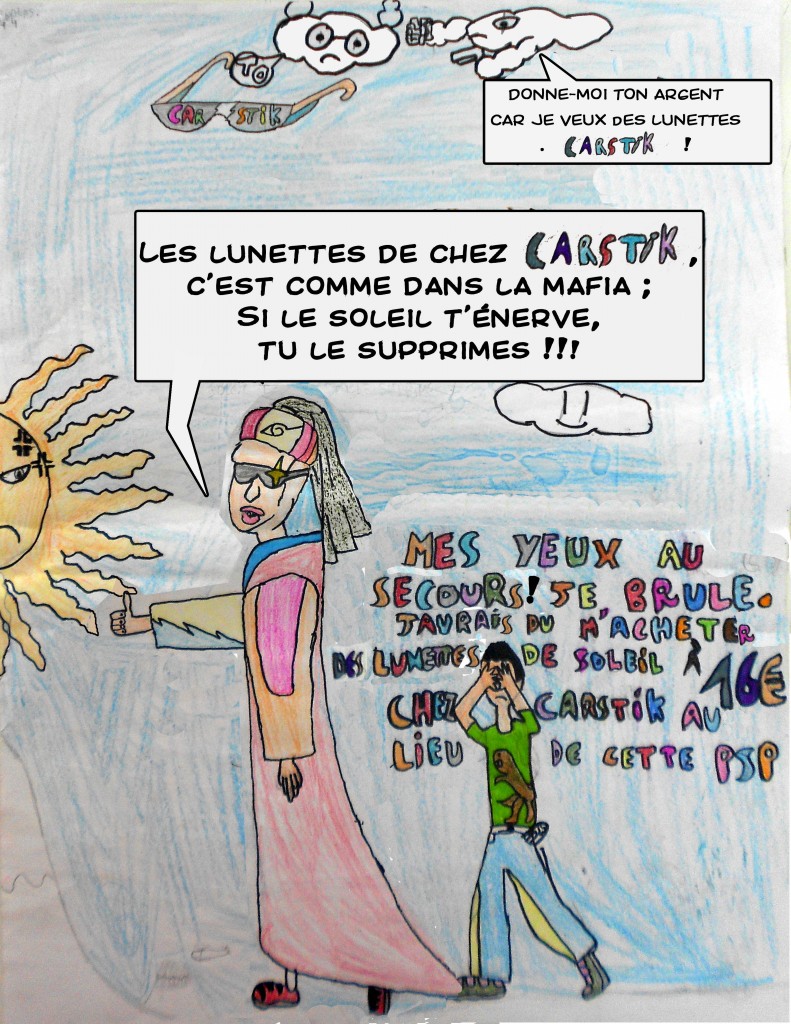 TO
CAR STIK
DONNE-MOI TON ARGENT
CAR JE VEUX DES LUNETTES
. CARSTIK !
LES LUNETTES DE CHEZ CARSTIK,
C'EST COMME DANS LA MAFIA ;
SI LE SOLEIL T'ÉNERVE,
TU LE SUPPRIMES !!!
MES YEUX AU
SECOURS! JE BRULE.
JAURAIS DU M'ACHETER
DES LUNETTES DE SOLEIL À 16€
CHEZ CARSTIK AU
LIEU DE CETTE PSP